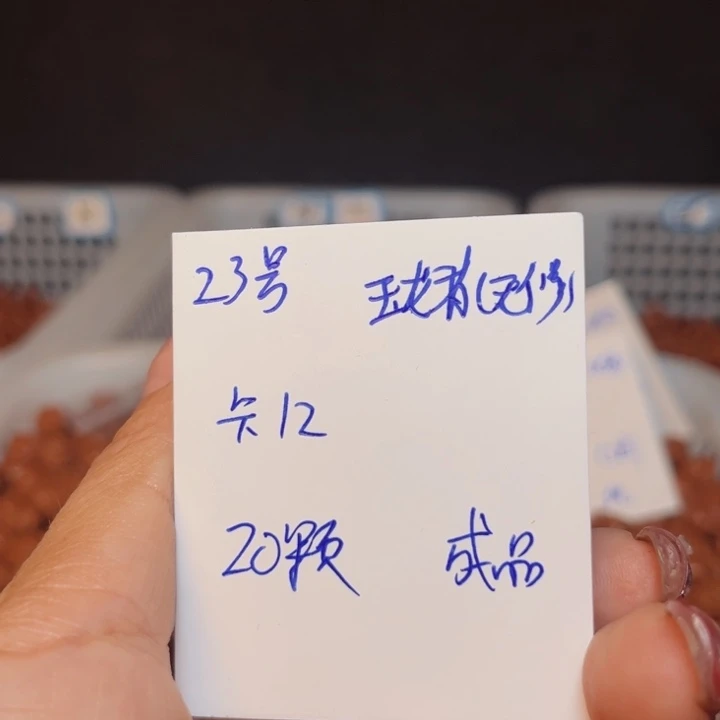 23号 玉龙肴(无修)
卡12
20颗 成品